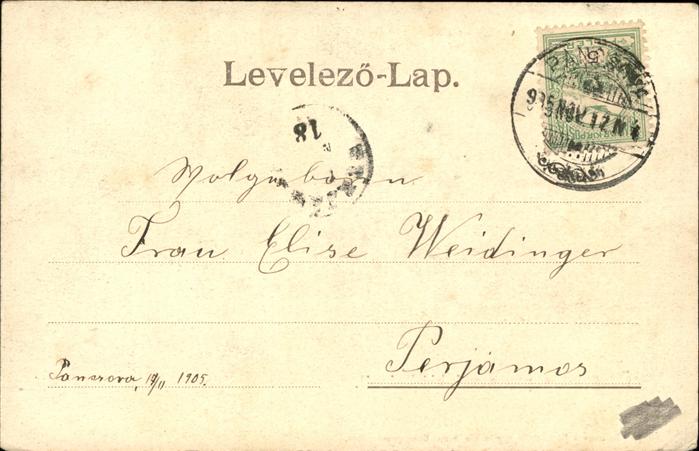 Levelező-Lap.
5
PANCSOVA
905 NOV 12 N
18
Wolgeboren
Frau Elise Weidinger
Perjámos
Pancsova, 12/11 1905.